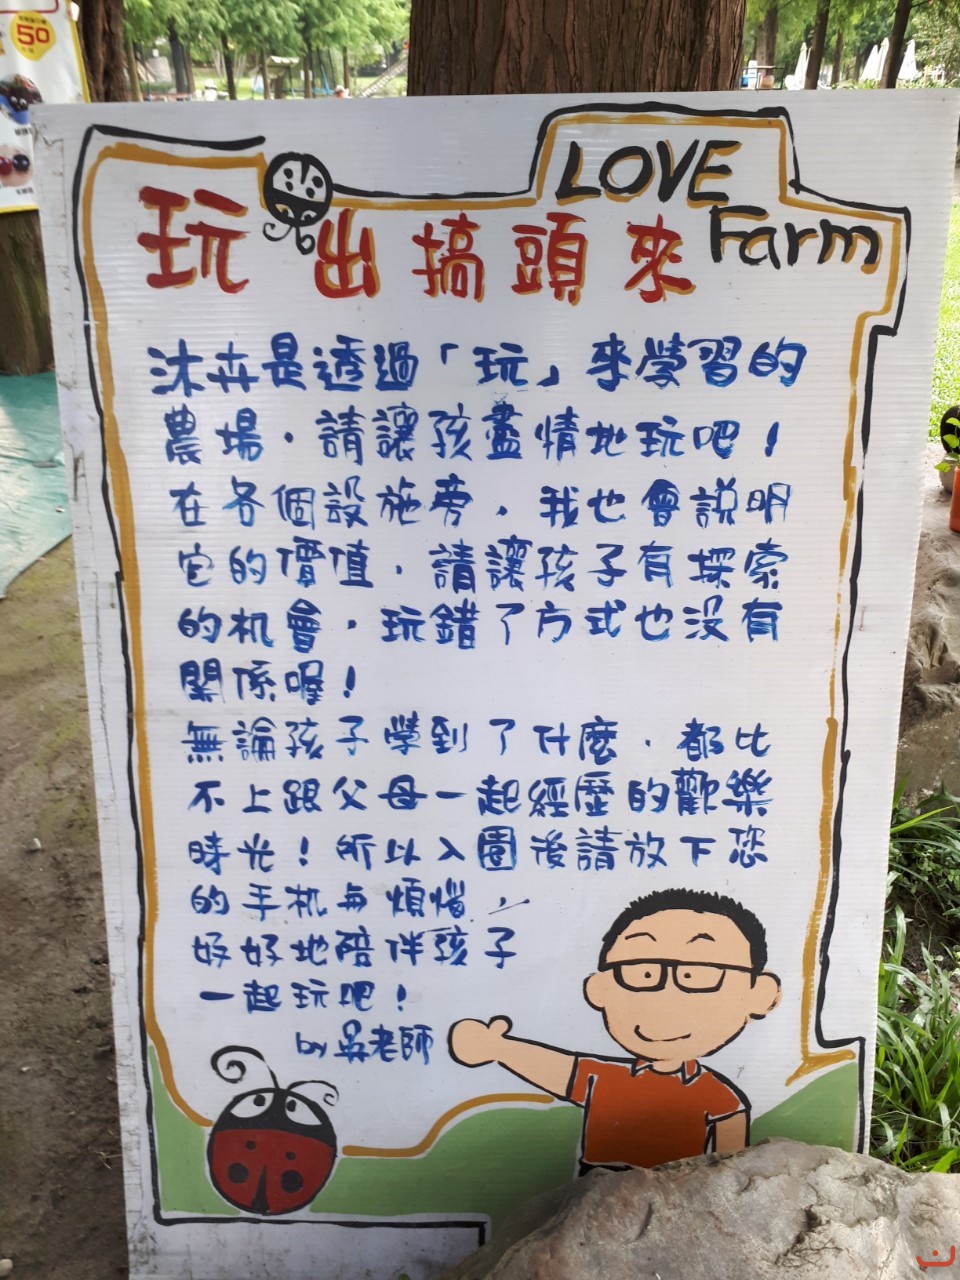 50
LOVE
Farm
玩出搞頭來
沐卉是透過「玩」來學習的
農場，請讓孩盡情地玩吧！
在各個設施旁，我也會説明
它的價值，請讓孩子有探索
的机會，玩錯了方式也没有
関係喔！
無論孩子學到了什麼，都比
不上跟父母一起經歷的歡樂
時光！所以入園後請放下您
的手机与煩惱，
好好地陪伴孩子
一起玩吧！
by 吳老師